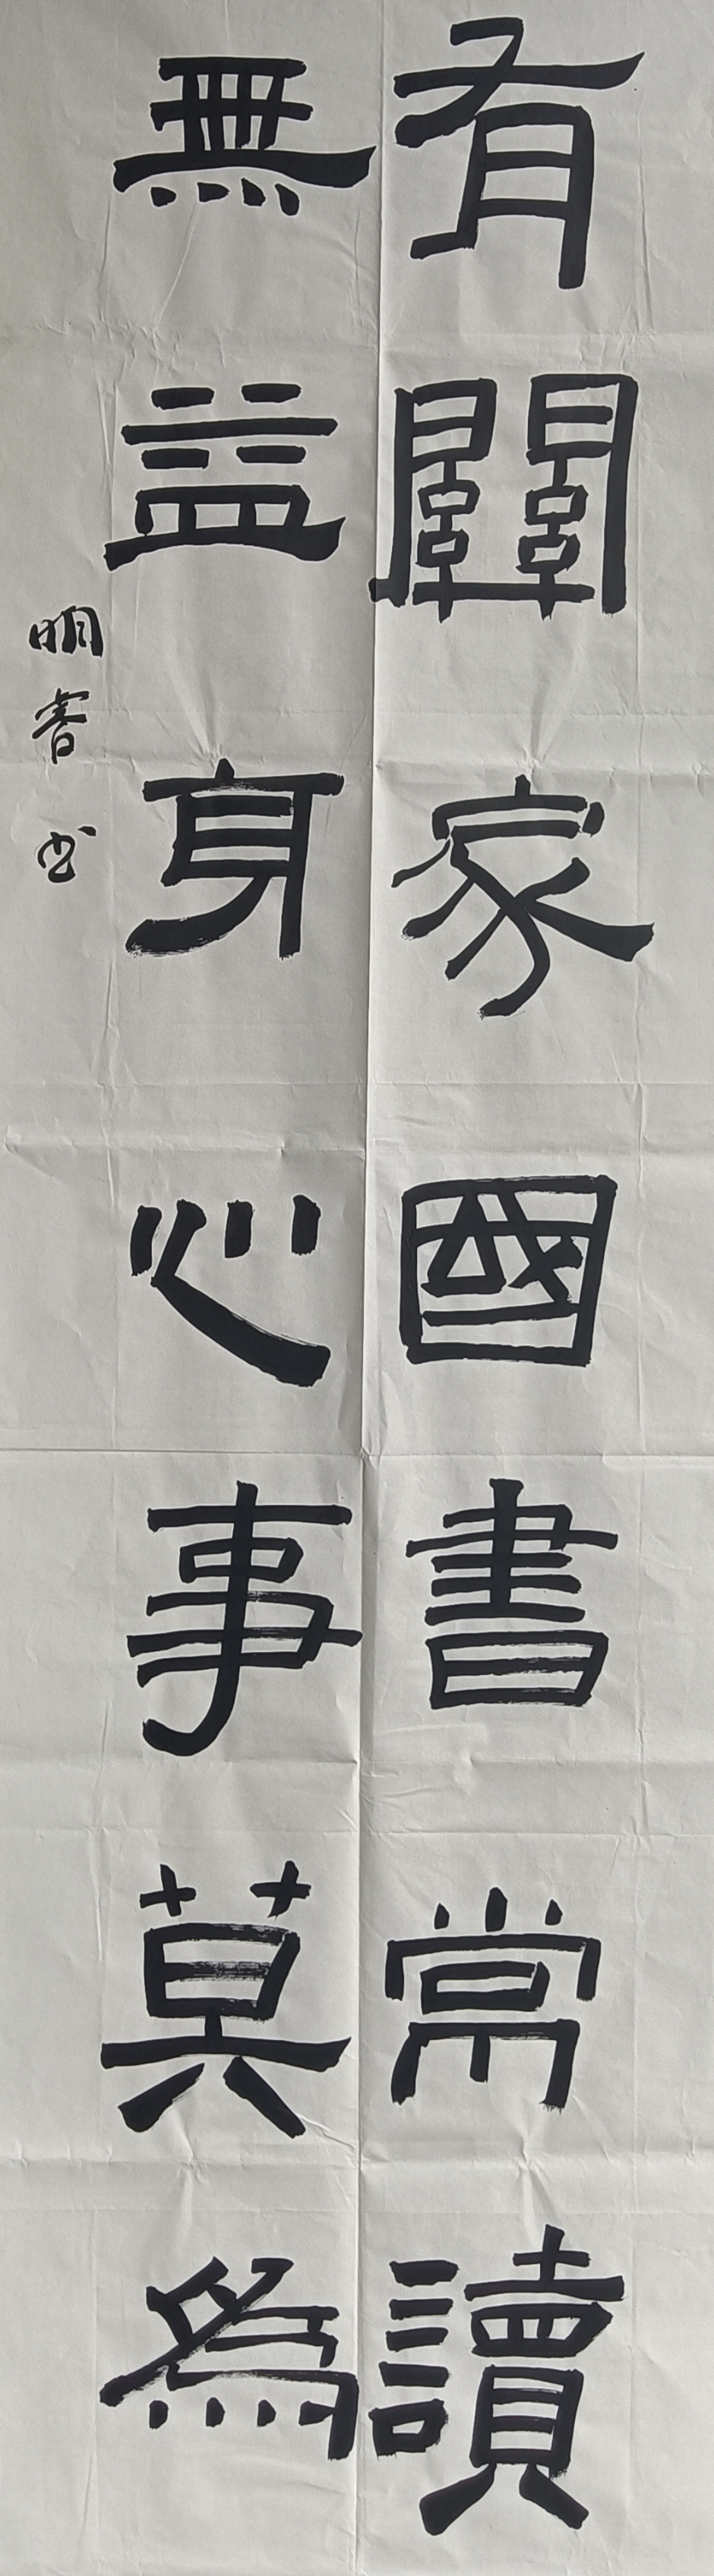 有關家國書常讀
無益身心事莫爲
明睿书